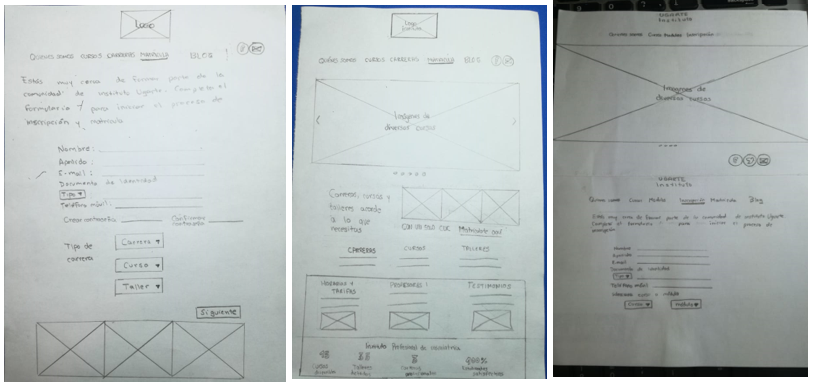 Logo
Quienes somos CURSOS CARRERAS MATRICULA BLOG
Estás muy cerca de formar parte de la
comunidad de instituto Ugarte. Completa el
formulario y para iniciar el proceso de
inscripción y matricula
Nombre:
Apellido:
E-mail:
Documento de identidad
Tipo
Teléfono móvil:
Crear contraseña Confirmar contraseña
Tipo de
carrera
Carrera
Curso
Taller
Siguiente
Logo
Quienes somos CURSOS CARRERAS MATRICULA BLOG
Imágenes de
diversos cursos
Carreras, cursos y
talleres acorde
a lo que
necesitas
CON UN SOLO CLIC Matricúlate aquí
CARRERAS CURSOS TALLERES
HORARIOS Y
TARIFAS
PROFESORES
TESTIMONIOS
Instituto Profesional de
UGARTE
Instituto
Quienes somos Cursos Modulos Inscripción
Imágenes de
diversos cursos
UGARTE
Instituto
Quienes somos Cursos Matricula Blog
Estás muy cerca de formar parte de la comunidad de instituto Ugarte
Completa el formulario y para iniciar el proceso de
Nombre
Apellido
E-mail
Documento de identidad
Tipo
Teléfono móvil
curso o módulo
Curso
Módulo